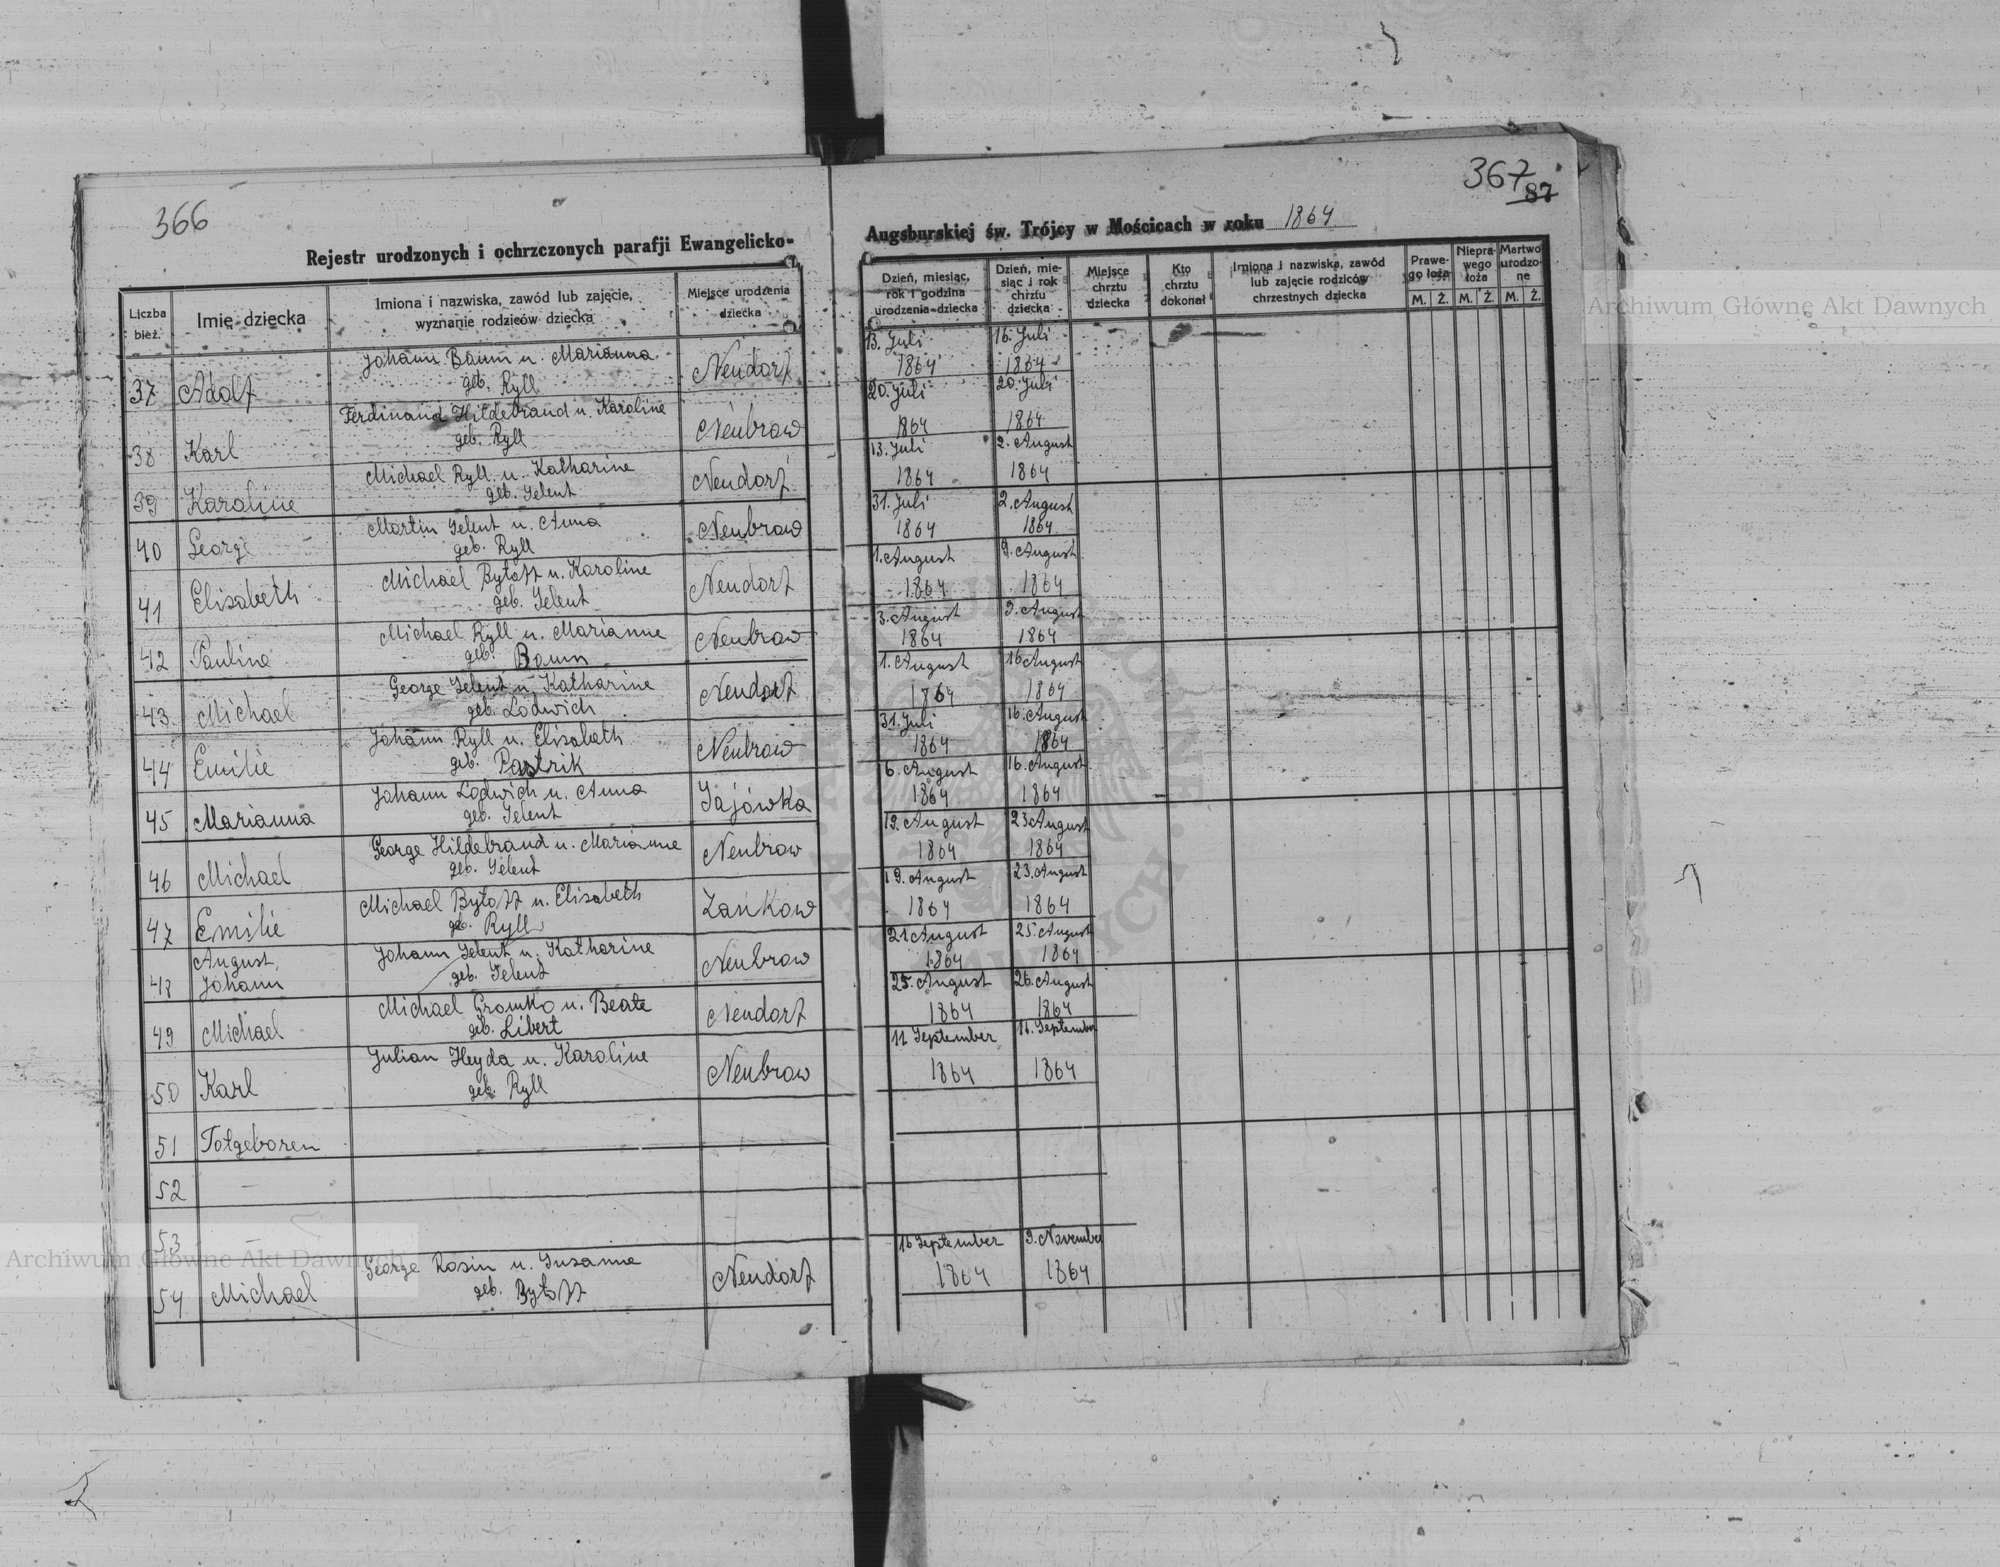 366
367
87
Rejestr urodzonych i ochrzczonych parafji Ewangelicko-
Augsburskiej św. Trójcy w Mościcach w roku 1864
Liczba bież.
Imię dziecka
Imiona i nazwiska, zawód lub zajęcie, wyznanie rodziców dziecka
Miejsce urodzenia dziecka
Dzień, miesiąc, rok i godzina urodzenia dziecka
Dzień, miesiąc i rok chrztu dziecka
Miejsce chrztu dziecka
Kto chrztu dokonał
Imiona i nazwiska, zawód lub zajęcie rodziców chrzestnych dziecka
Prawego łoża
Nieprawego łoża
Martwo urodzone
M. Ż. M. Ż. M. Ż.
37 Adolf Johann Baum u. Marianna geb. Ryll Neudorf 13. Juli 1864 16. Juli 1864
38 Karl Ferdinand Hildebrand u. Karoline geb. Ryll Neubrow 20. Juli 1864 20. Juli 1864
39 Karoline Michael Ryll u. Katharine geb. Jelent Neudorf 13. Juli 1864 2. August 1864
40 George Martin Jelent u. Anna geb. Ryll Neubrow 31. Juli 1864 2. August 1864
41 Elisabeth Michael Bytoff u. Karoline geb. Jelent Neudorf 1. August 1864 9. August 1864
42 Paulina Michael Ryll u. Marianne geb. Baum Neubrow 3. August 1864 9. August 1864
43 Michael George Jelent u. Katharine geb. Lodwich Neudorf 1. August 1864 16 August 1864
44 Emilie Johann Ryll u. Elisabeth geb. Pastrik Neubrow 31. Juli 1864 16. August 1864
45 Marianna Johann Lodwich u. Anna geb. Jelent Jajówka 6. August 1864 16. August 1864
46 Michael George Hildebrand u. Marianne geb. Jelent Neubrow 19. August 1864 23 August 1864
47 Emilie Michael Bytoff u. Elisabeth geb. Ryll Zańkow 19. August 1864 23. August 1864
48 August, Johann Johann Jelent u. Katharine geb. Jelent Neubrow 21 August 1864 25. August 1864
49 Michael Michael Gromko u. Beate geb. Libert Neudorf 25. August 1864 26. August 1864
50 Karl Julian Heyda u. Karoline geb. Ryll Neubrow 11 September 1864 11. September 1864
51 Totgeboren
52 —
53 —
54 Michael George Rosin u. Susanne geb. Bytoff Neudorf 16 September 1864 9. November 1864
Archiwum Główne Akt Dawnych
Archiwum Główne Akt Dawnych